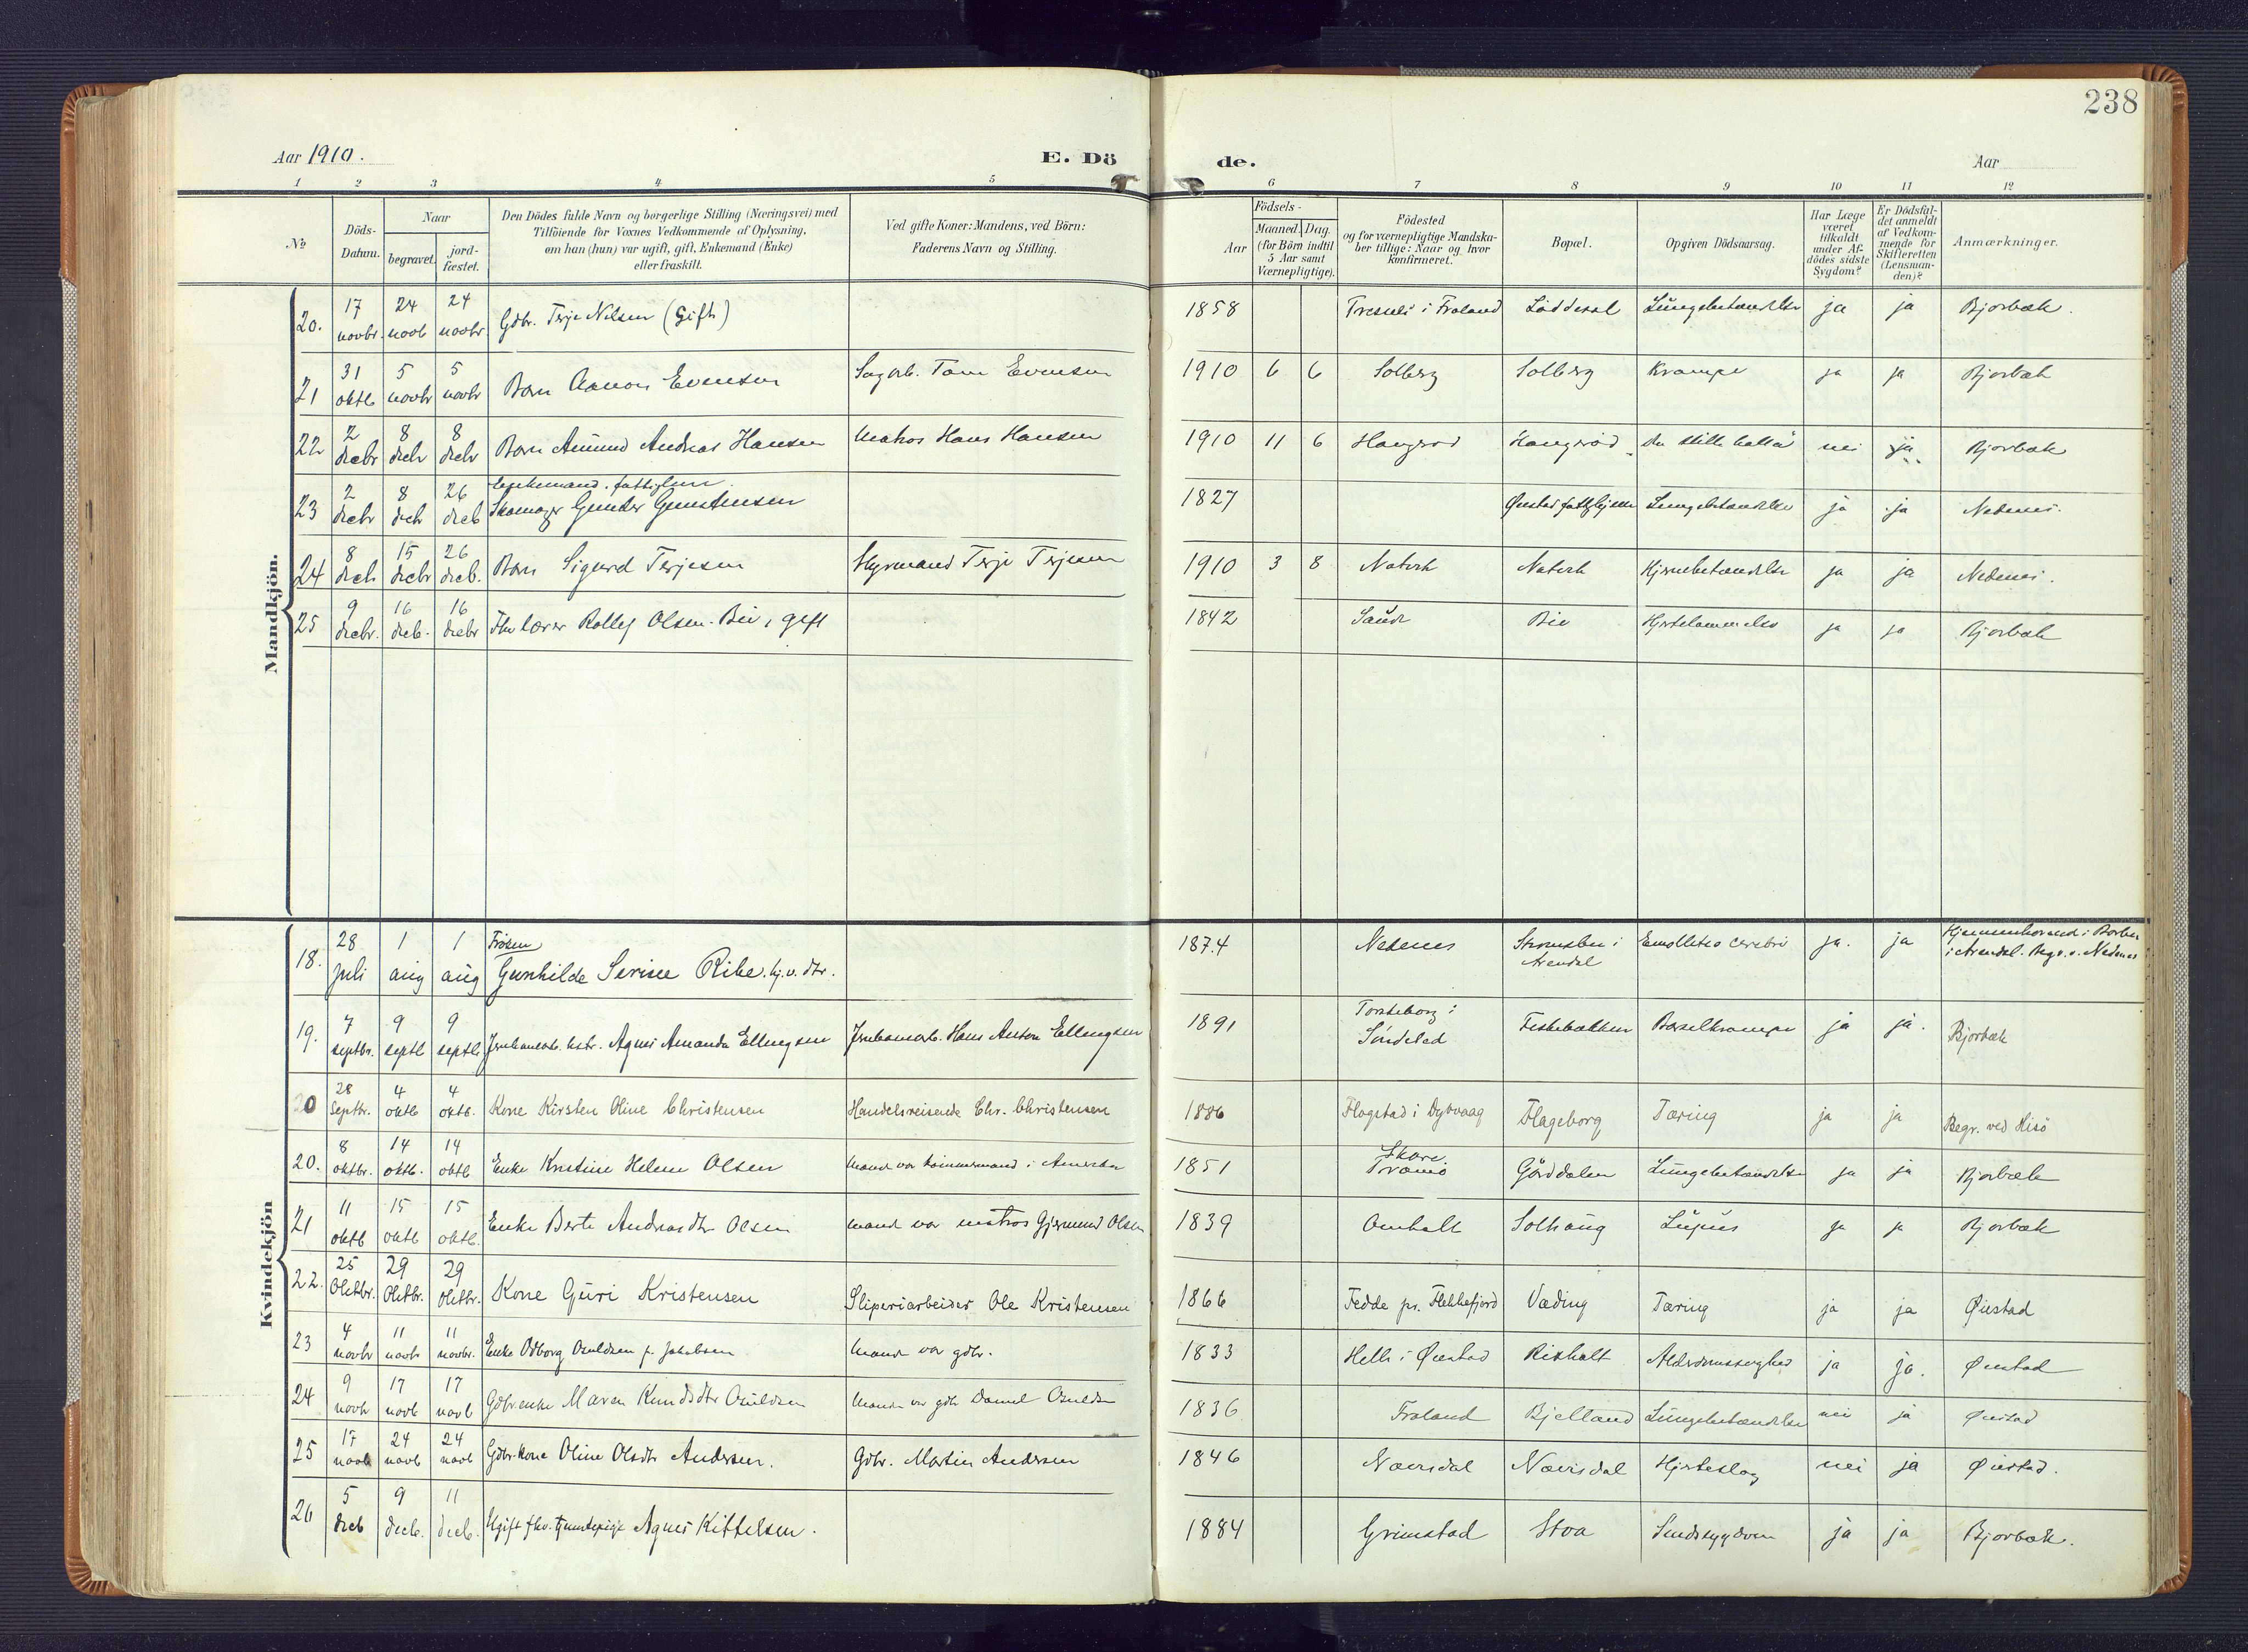 238
Aar 1910.
E. Dö
de.
Aar
1 2 3 4 5 6 7 8 9 10 11 12
No
Döds-Datum.
Naar
begravet.
jord-fæstet.
Den Dödes fulde Navn og borgerlige Stilling (Næringsvei) med
Tilföiende for Voxnes Vedkommende af Oplysning,
om han (hun) var ugift, gift, Enkemand (Enke)
eller fraskilt.
Ved gifte Koner: Mandens, ved Börn:
Faderens Navn og Stilling.
Födsels-
Aar
Maaned.
Dag.
(for Börn indtil
5 Aar samt
Værnepligtige).
Födested
og for værnepligtige Mandska-
ber tillige: Naar og hvor
konfirmeret.
Bopæl.
Opgiven Dödsaarsag.
Har Læge
været
tilkaldt
under Af-
dödes sidste
Sygdom?
Er Dödsfal-
det anmeldt
af Vedkom-
mende for
Skifteretten
(Lensman-
den)?
Anmærkninger.
Mandkjön.
20. 17 novbr. 24 novb 24 novbr. Gdbr. Terje Nilsen (Gift) 1858 Tresnes i Froland Löddesöl Lungebetændelse ja ja Bjorbæk.
21 31 oktb 5 novbr 5 novbr Barn Aanon Evensen Sagarb. Tom Evensen 1910 6 6 Solberg Solberg Krampe ja ja Bjorbæk
22 2 decbr 8 decb 8 decbr Barn Amund Andreas Hansen Matros Hans Hansen 1910 11 6 Haugerød Haugerød nei ja Bjorbæk
23 2 decbr 8 decb 26 decb Enkemand. fattiglem. Skomager Gunder Gunstensen 1827 Øiestad fattighjem Lungebetændelse ja ja Nedenes.
24 8 decb 15 decbr 26 decb. Barn Sigurd Terjesen Styrmand Terje Terjesen 1910 3 8 Natvik Natvik Hjernebetændelse ja ja Nedenes.
25 9 decbr. 16 decb. 16 decbr Fhv lærer Rolley Olsen Bie, gift 1842 Sande Bie Hjertelammelse ja ja Bjorbæk
Kvindekjön
18. 28 juli 1 aug 1 aug Frøken Gunhilde Serine Ribe. hj.v. dtr. 1874 Nedenes Strømsbu i Arendal Emollitio cerebri ja. ja Hjemmehørende i Barbu i Arendal. Begr. v. Nedenes
19. 7 septbr. 9 septb 9 septb Jernbanearb. hstr. Agnes Amanda Ellingsen Jernbanearb. Hans Anton Ellingsen 1891 Torsteborg i Søndeled Fiskebækken Barselkrampe ja ja. Bjorbæk
20 28 Septbr. 4 oktb 4 oktb. Kone Kirsten Oline Christensen Handelsreisende Chr. Christensen 1886 Flogstad i Dybvaag Flageborg Tæring ja ja Begr. ved Hisö
20. 8 oktbr. 14 oktb. 14 oktb Enke Kristine Helene Olsen Mand var tømmermand i Amerika 1851 Skare Tromö Gorddalen Lungebetændelse ja ja Bjorbæk
21 11 oktb 15 oktb 15 oktb. Enke Berte Andreasdtr Olsen mand var matros Gjermund Olsen 1839 Omholt Solhaug Lupus ja ja Bjorbæk
22. 25 Oktbr. 29 Oktbr. 29 Oktbr. Kone Guri Kristensen Sliperiarbeider Ole Kristensen 1866 Fedde pr. Flekkefjord Væding Tæring ja ja Øiestad
23 4 novbr 11 novb 11 novbr. Enke Odborg Osuldsen f. Jakobsen Mand var gdbr. 1833 Helle i Øiestad Risholt Alderdomssvaghed ja ja. Øiestad
24 9 novb 17 novb 17 novb Gdbr.enke Maren Knudsdtr Osuldsen Mand var gdbr Daniel Osulds 1836 Froland Bjelland Lungebetændelse nei ja Øiestad
25 17 novb 24 novb 24 novb Gdbr.kone Oline Olsdtr Andersen. Gdbr. Martin Andersen 1846 Næversdal Næversdal Hjerteslag nei ja Øiestad.
26 5 decb 9 decb. 11 decb. Ugift fhv. tjenestepige Agnes Kittelsen. 1884 Grimstad Stoa Sindssygdom ja ja Bjorbæk.